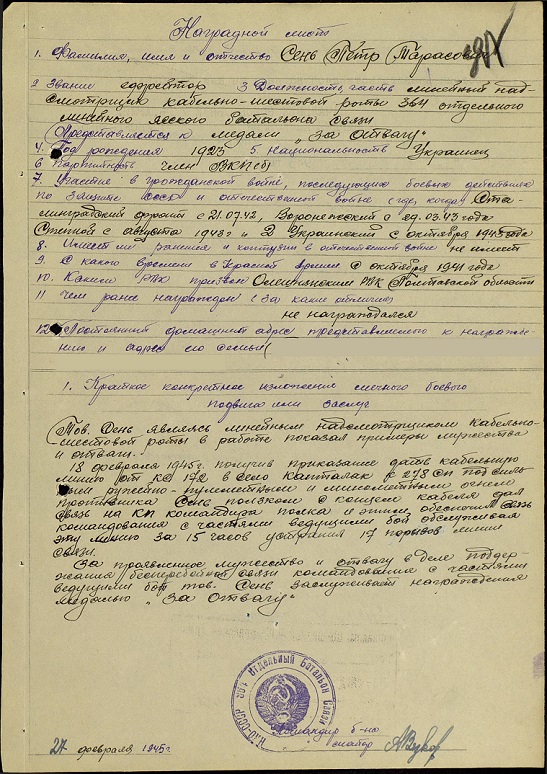 Наградной лист
1. Фамилия, имя и отчество Сень Пётр Тарасович
2 Звание ефрейтор 3 Должность, часть линейный над-
смотрщик кабельно-шестовой роты 364 отдельного
линейного ясского батальона связи
Представляется к медали „За Отвагу"
4. Год рождения 1923 5. Национальность Украинец
6 Партийность член ВКП(б)
7. Участие в гражданской войне, последующих боевых действиях
по защите СССР и отечественной войне (где, когда) Ста-
линградский фронт с 21.07.42, Воронежский с 03.43 года
Степной с августа 1943 г и 2 Украинский с октября 1943 года
8. Имеет ли ранения и контузии в отечественной войне не имеет
9. С какого времени в Красной армии с октября 1941 года
10. Каким РВК призван РВК Полтавской области
11 Чем ранее награжден (за какие отличия)
не награждался
12 Постоянный домашний адрес представляемого к награжде-
нию и адрес его семьи
1. Краткое конкретное изложение личного боевого
подвига или заслуг
Тов. Сень являясь линейным надсмотрщиком кабельно-
шестовой роты в работе показал примеры мужества
и отваги.
18 февраля 1945 г. получив приказание дать кабельную
линию от 172 в село к 218 сп под силь-
ным ружейно-пулеметным и минометным огнем
противника Сень ползком с концем кабеля дал
связь на КП командира полка и этим обеспечил связь
командования с частями ведущими бой обслуживая
эту линию за 15 часов устранил 17 порывов линии
связи.
За проявленное мужество и отвагу в деле поддер-
жания бесперебойной связи командования с частями
ведущими бой тов. Сень заслуживает награждения
медалью „За Отвагу"
НКО-СССР 364 Отдельный Батальон Связи
Командир б-на
27 февраля 1945 г.